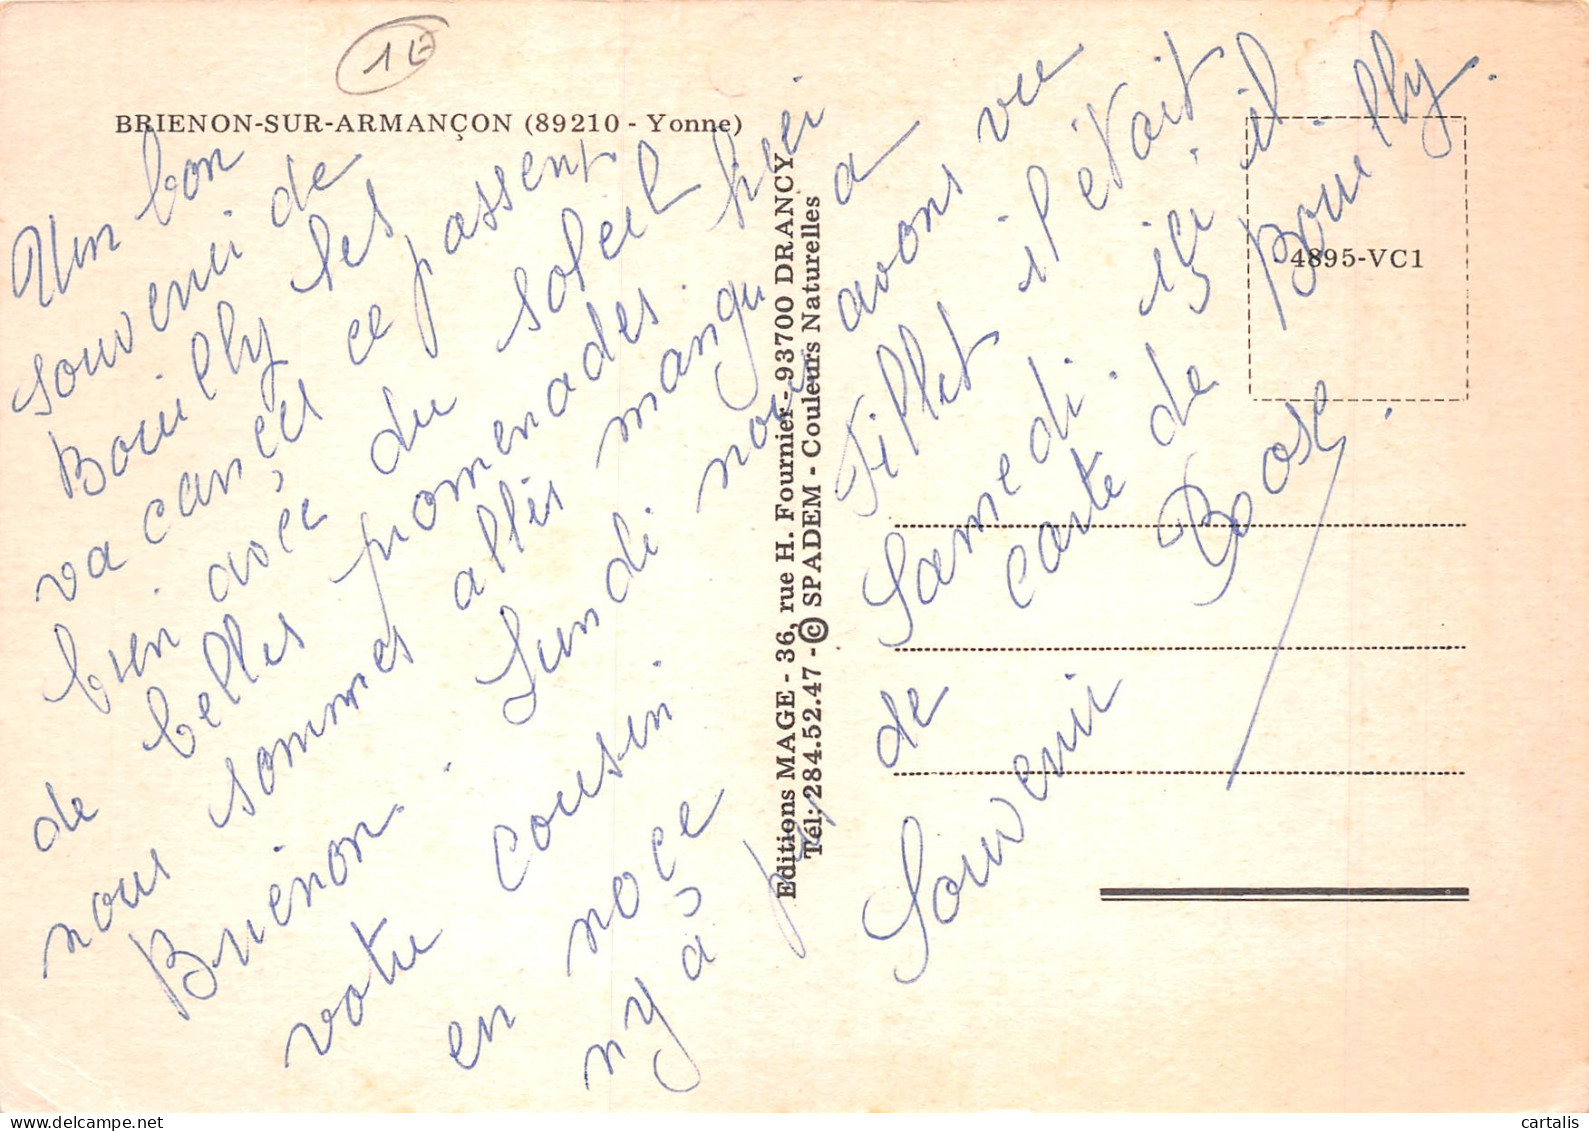 1E
BRIENON-SUR-ARMANÇON (89210 - Yonne)
Un bon
souvenir de
Bouilly les
vacançes ce passent
bien avec du soleil
de belles promenades. hier
nous sommes allés manger a
Brienon. Lundi nous avons vu
votre cousin Fillet il était
en noçe Samedi. içi il
n'y a pas de carte de Bouilly.
Souvenir Rose.
Editions MAGE - 36, rue H. Fournier - 93700 DRANCY
Tél: 284.52.47 - © SPADEM - Couleurs Naturelles
4895-VC1
cartalis
delcampe.net